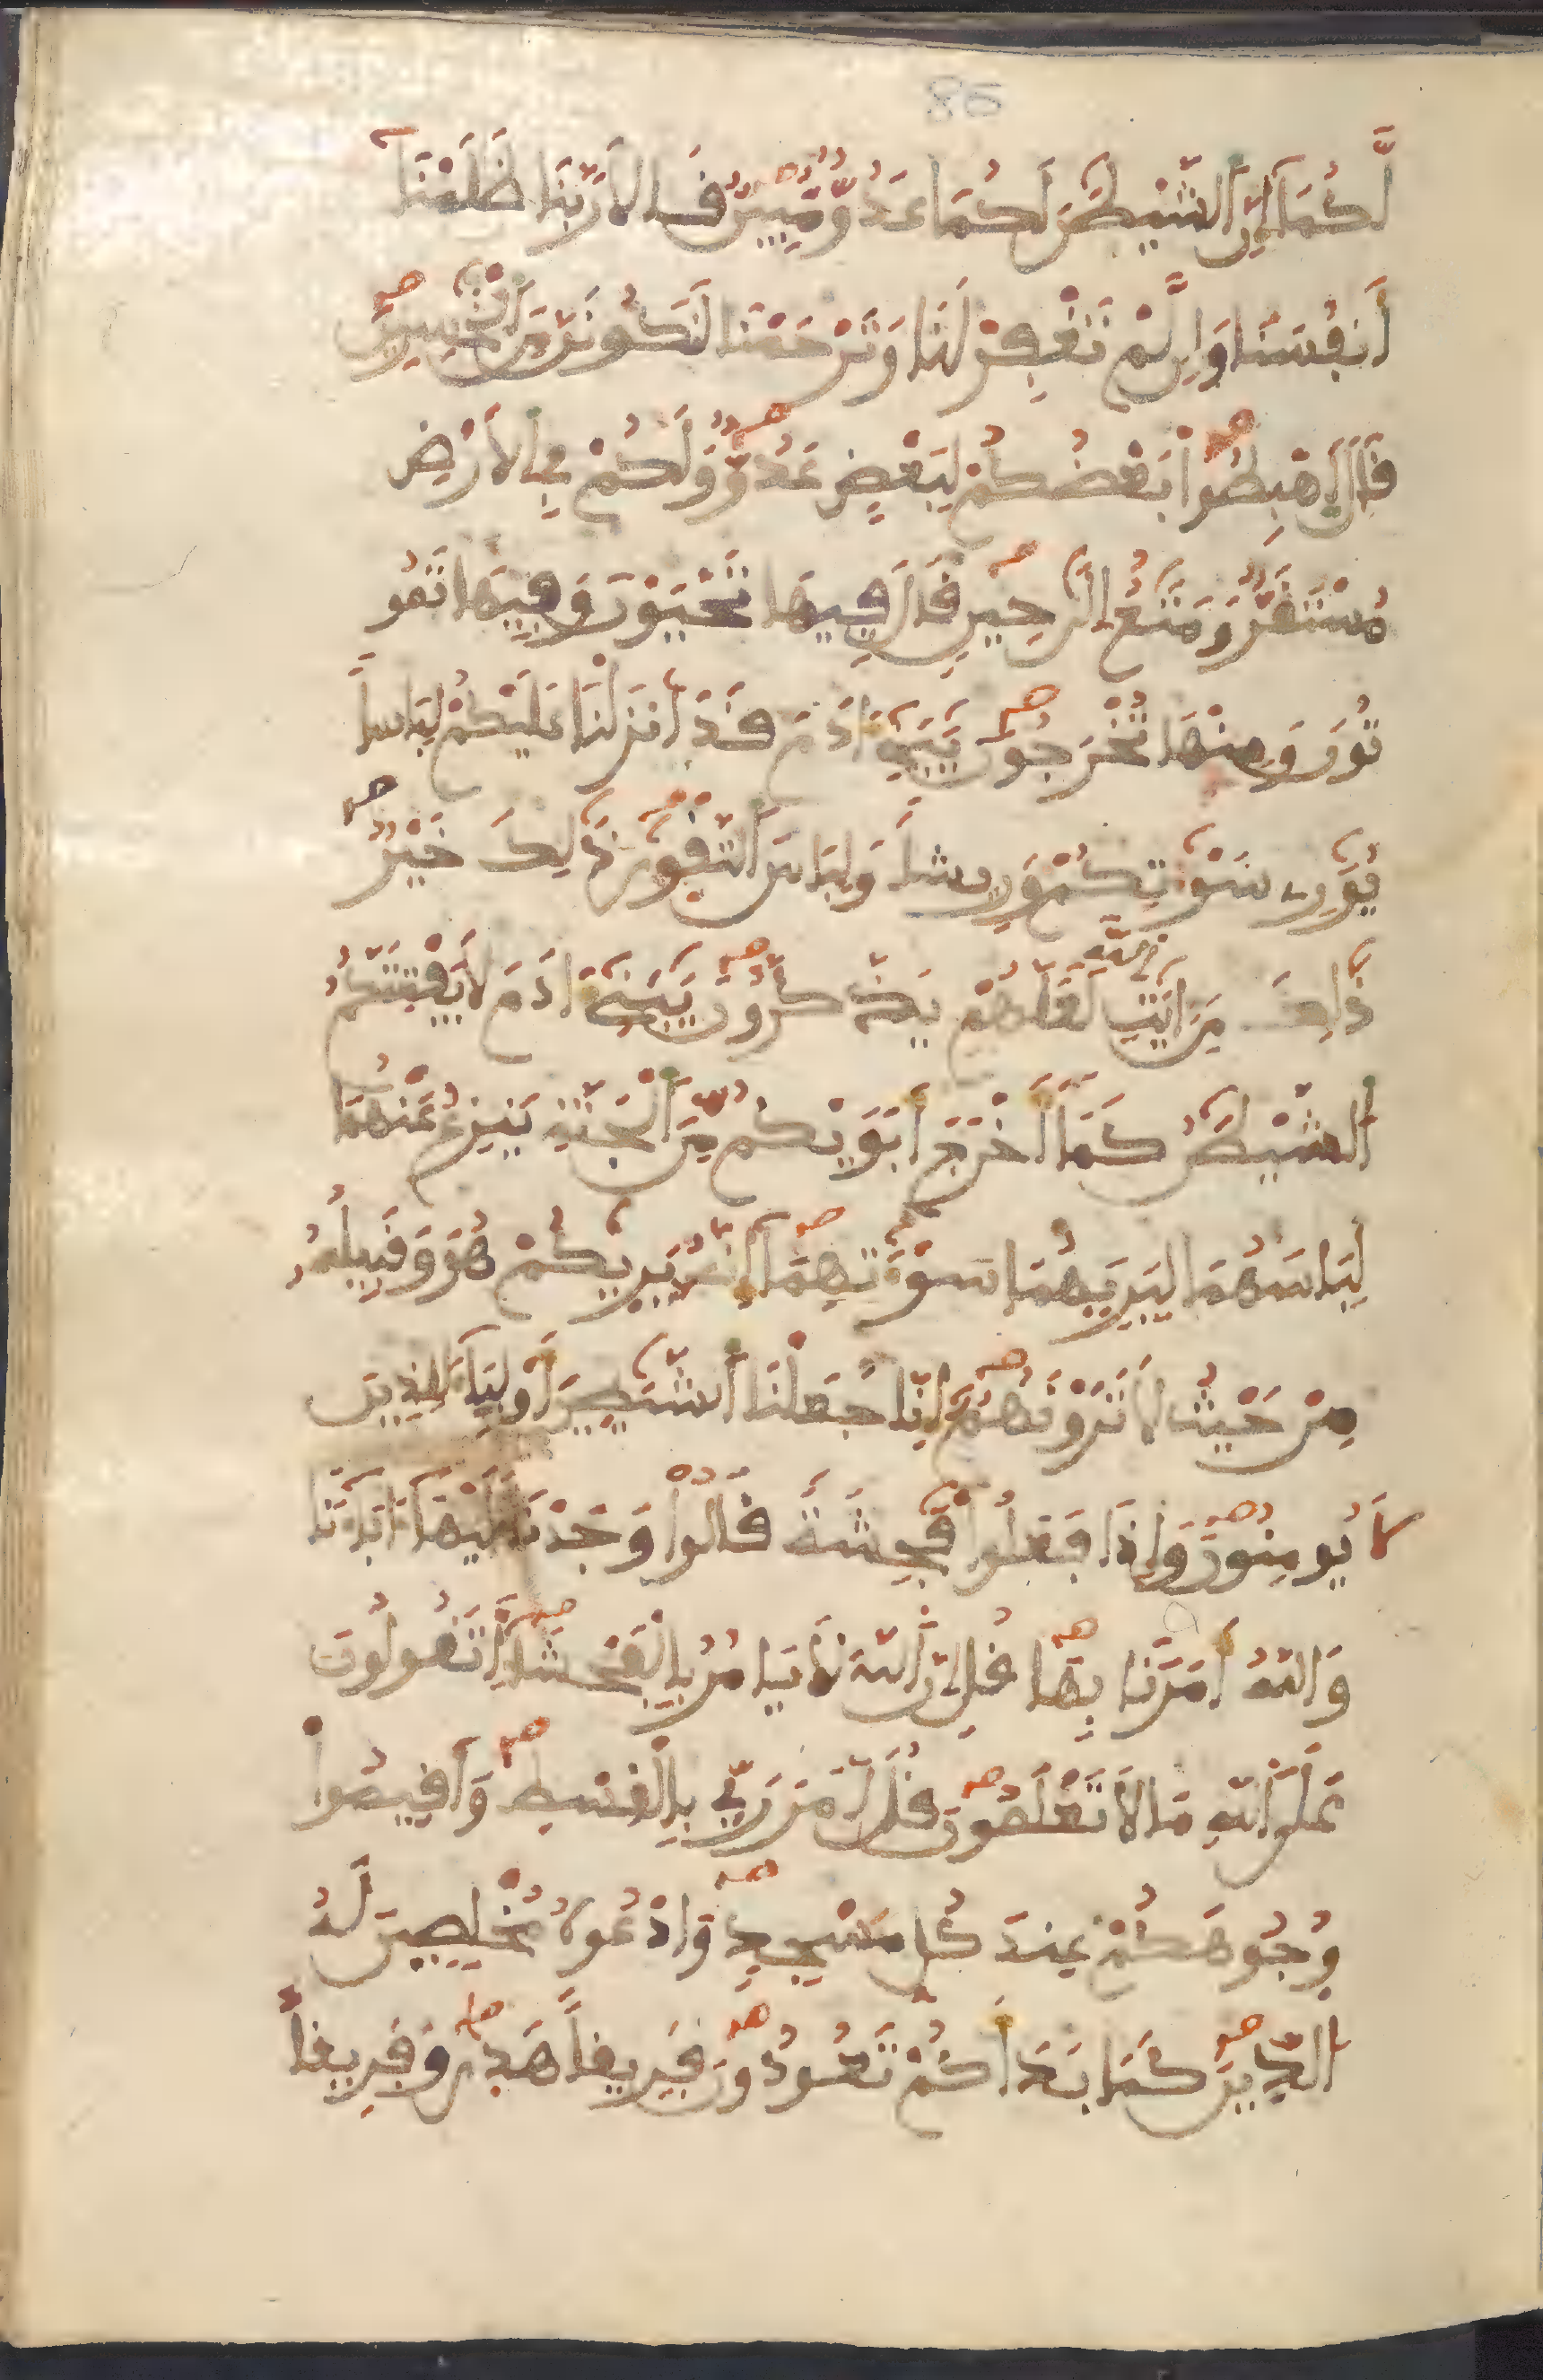 86
لَّكُمَا إِنَّ اَلشَّيْطَٰنَ لَكُمَا عَدُوٌّ مُّبِينٌ قَالَا رَبَّنَا ظَلَمْنَا
أَنفُسَنَا وَإِن لَّمْ تَغْفِرْ لَنَا وَتَرْحَمْنَا لَنَكُونَنَّ مِنَ اَلْخَٰسِرِينَ
قَالَ اَهْبِطُواْ بَعْضُكُمْ لِبَعْضٍ عَدُوٌّ وَلَكُمْ فِي اِلَارْضِ
مُسْتَقَرٌّ وَمَتَٰعٌ اِلَىٰ حِينٍ قَالَ فِيهَا تَحْيَوْنَ وَفِيهَا تَمُو
تُونَ وَمِنْهَا تُخْرَجُونَ يَٰبَنِےٓ ءَادَمَ قَدْ أَنزَلْنَا عَلَيْكُمْ لِبَاساً
يُوَٰرِے سَوْءَٰتِكُمْ وَرِيشاً وَلِبَاسَ اَلتَّقْوَىٰ ذَٰلِكَ خَيْرٌ
ذَٰلِكَ مِنَ اٰيَٰتِ اِللَّهِ لَعَلَّهُمْ يَذَّكَّرُونَ يَٰبَنِےٓ ءَادَمَ لَا يَفْتِنَنَّكُمُ
اُلشَّيْطَٰنُ كَمَآ أَخْرَجَ أَبَوَيْكُم مِّنَ اَلْجَنَّةِ يَنزِعُ عَنْهُمَا
لِبَاسَهُمَا لِيُرِيَهُمَا سَوْءَٰتِهِمَآ إِنَّهُ يَرَىٰكُمْ هُوَ وَقَبِيلُهُ
مِنْ حَيْثُ لَا تَرَوْنَهُمْ إِنَّا جَعَلْنَا اَلشَّيَٰطِينَ أَوْلِيَآءَ لِلذِينَ
لَا يُومِنُونَ وَإِذَا فَعَلُواْ فَٰحِشَةً قَالُواْ وَجَدْنَا عَلَيْهَآ ءَابَآءَنَا
وَاللَّهُ أَمَرَنَا بِهَا قُلِ اِنَّ اَللَّهَ لَا يَامُرُ بِالْفَحْشَآءِ أَتَقُولُونَ
عَلَى اَللَّهِ مَا لَا تَعْلَمُونَ قُلَ اَمَرَ رَبِّي بِالْقِسْطِ وَأَقِيمُواْ
وُجُوهَكُمْ عِندَ كُلِّ مَسْجِدٍ وَادْعُوهُ مُخْلِصِينَ لَهُ
اُلدِّينَ كَمَا بَدَأَكُمْ تَعُودُونَ فَرِيقاً هَدَىٰ وَفَرِيقاً